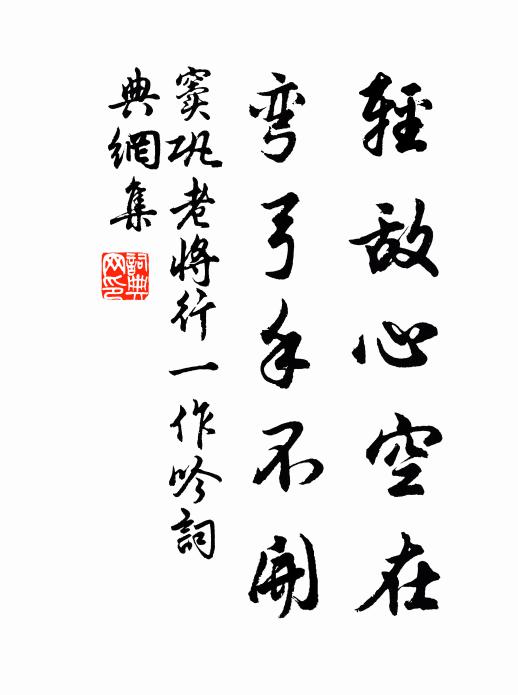 輕敵心空在
彎弓手不開
竇巩老將行一作吟詞
典網集
詞典
网印